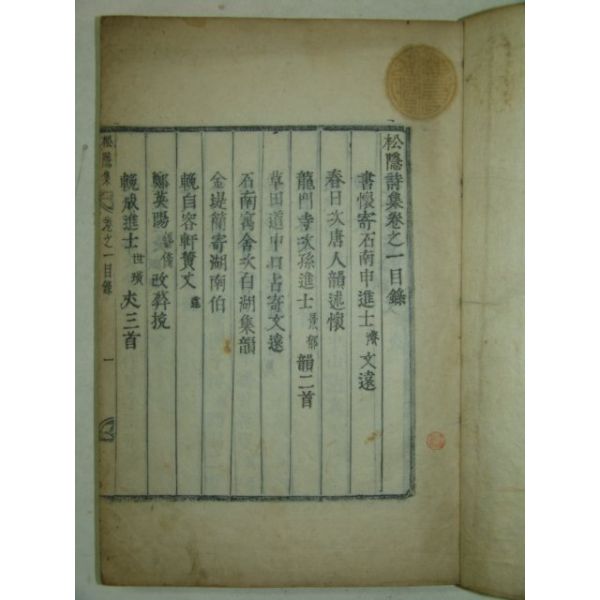 松隱詩集卷之一目錄
書懷寄石南申進士濟文遠
春日次唐人韻述懷
龍門寺次孫進士景郁韻二首
草田道中口占寄文遠
石南寓舍次白湖集韻
金堤簡寄湖南伯
輓自容軒黃丈
鄭英陽改葬挽
輓成進士世璜丈三首
松隱集 卷之一目錄 一